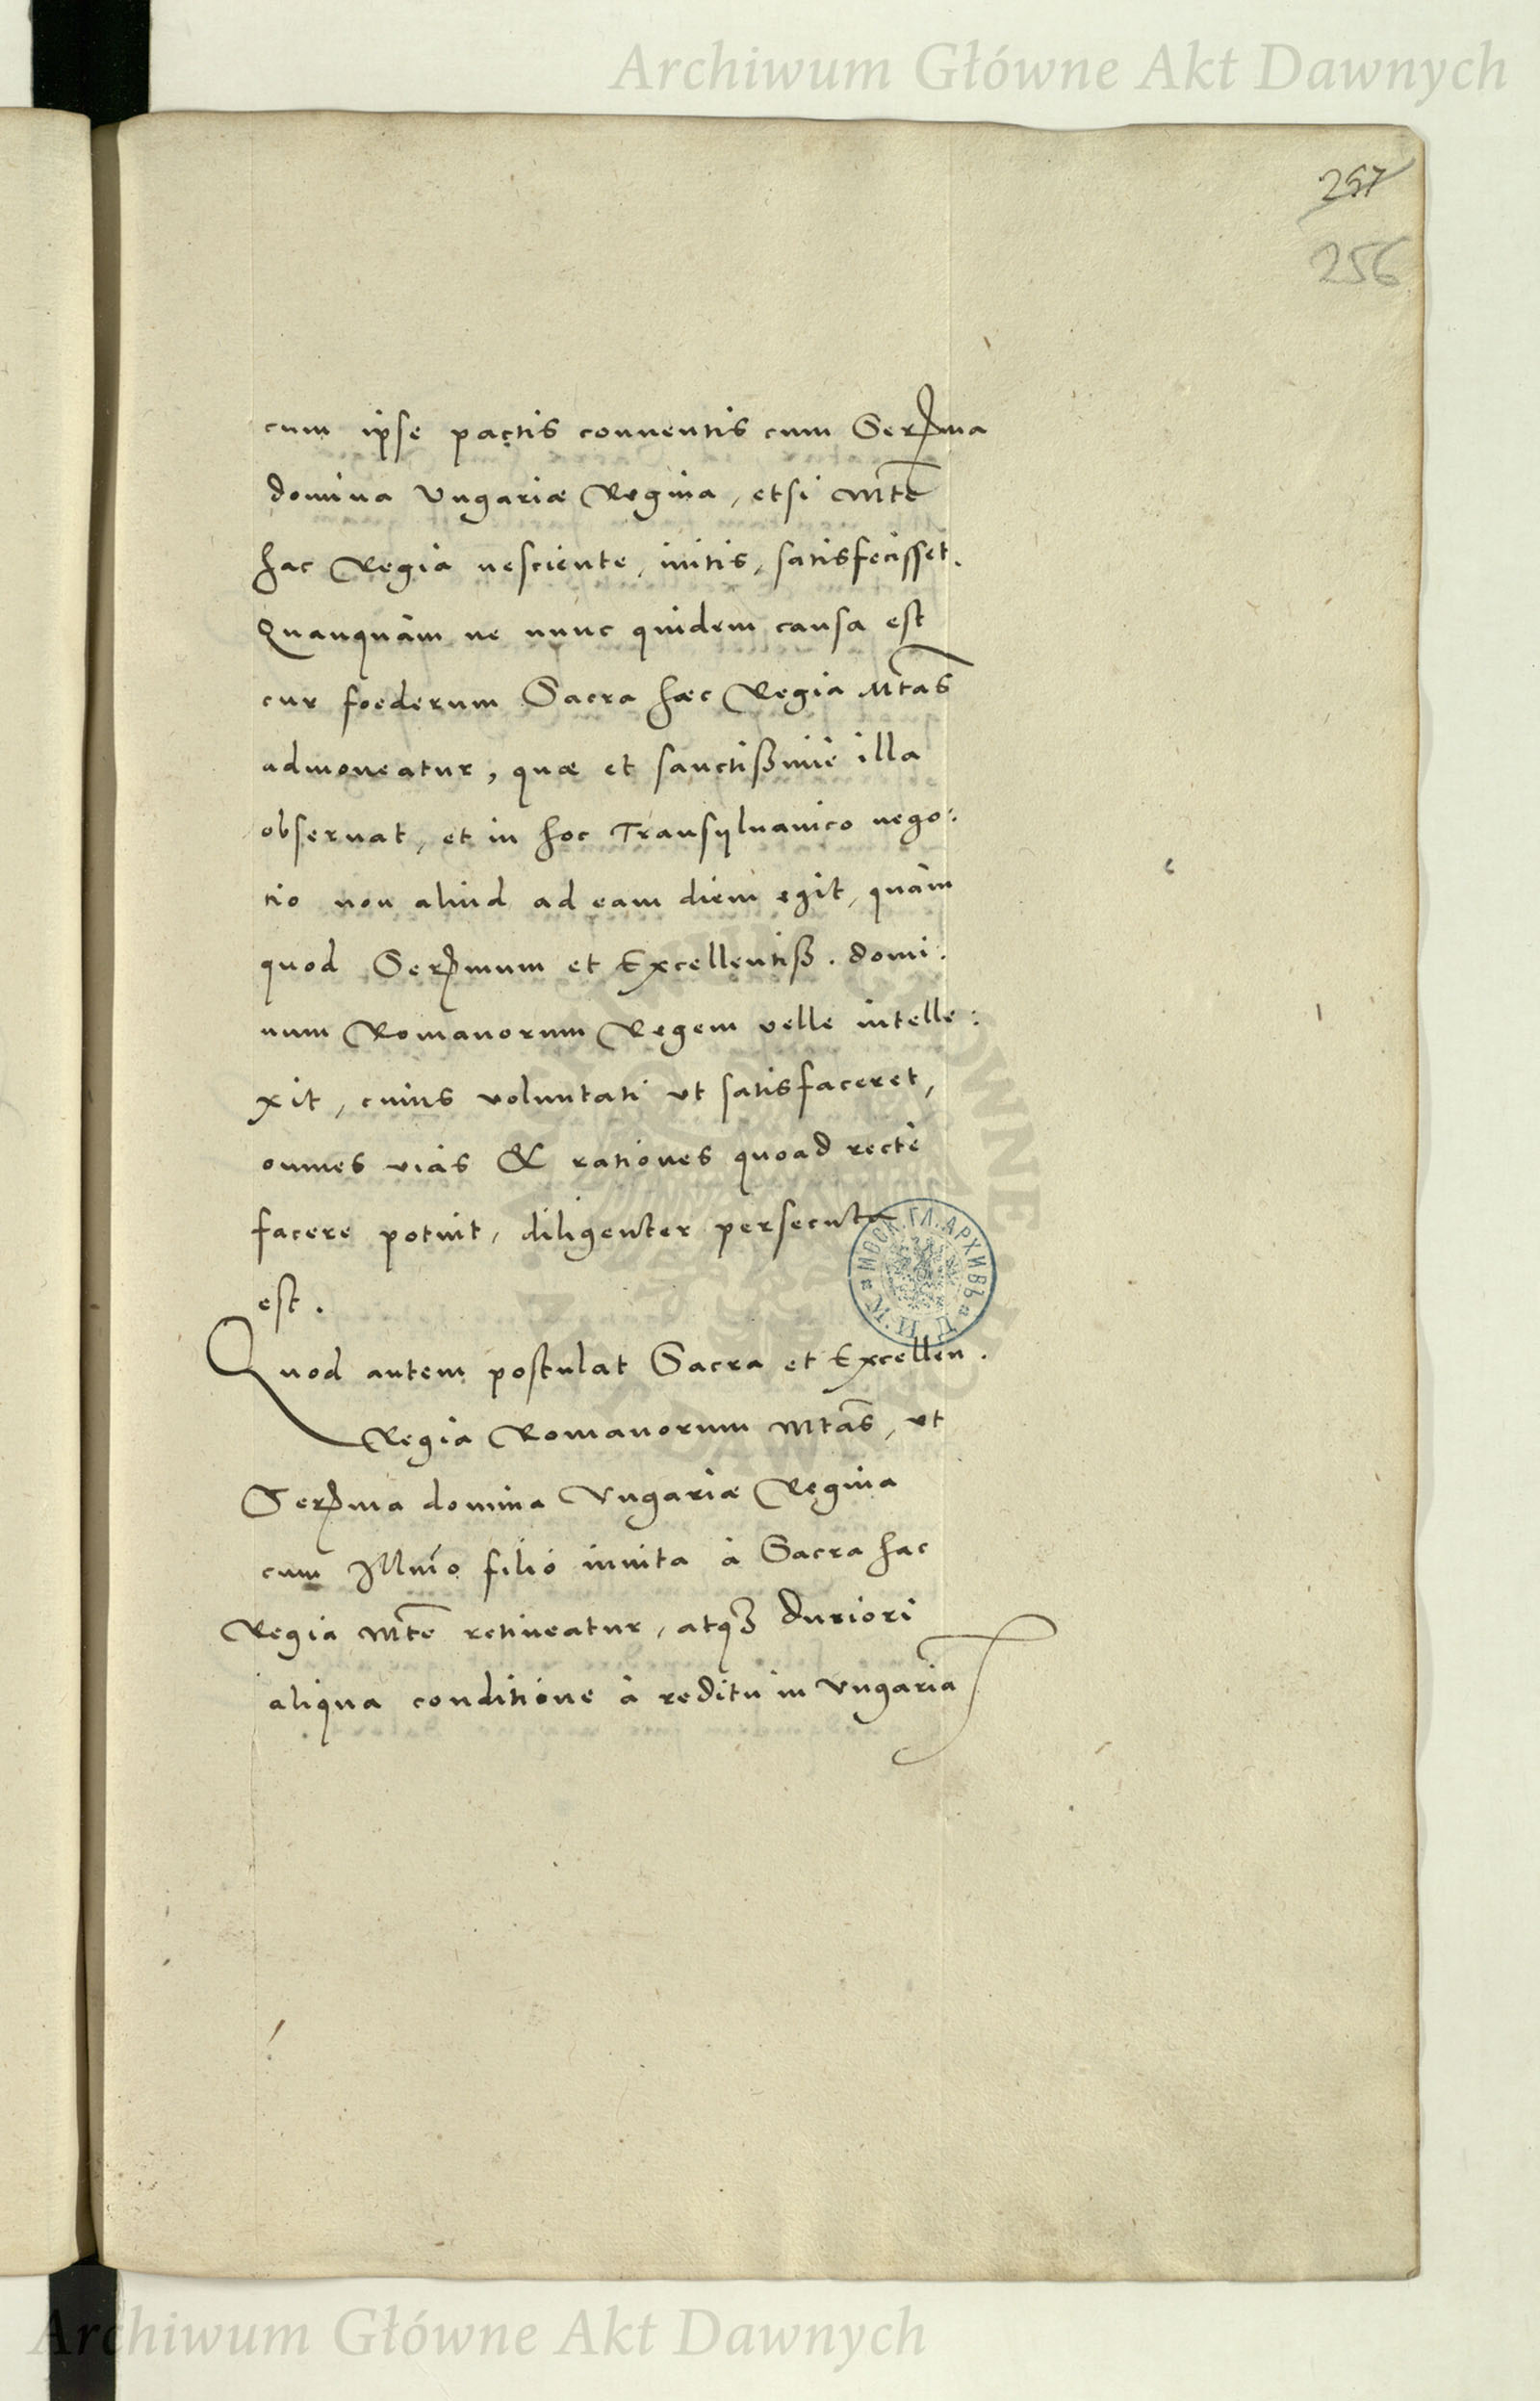 Archiwum Główne Akt Dawnych
257
256
cum ipse pactis conuentis cum Serma
domina Vngariæ Regina, etsi Mte
hac Regia nesciente, initis, satisfecisset.
Quanquàm ne nunc quidem causa est
cur foederum Sacra hæc Regia Mtas
admoneatur, quæ et sanctißimè illa
obseruat, et in hoc Transyluanico nego:
tio non aliud ad eam diem egit, quàm
quod Sermum et Excellentiß. domi:
num Romanorum Regem velle intelle:
xit, cuius voluntati vt satisfaceret,
omnes vias & rationes quoad rectè
facere potuit, diligenter persecuta
est.
Quod autem postulat Sacra et Excellen.
Regia Romanorum Mtas, vt
Serma domina Vngariæ Regina
cum Illmo filio inuita à Sacra hac
Regia Mte retineatur, atq3 duriori
aliqua conditione à reditu in Vngariã
МОСК. ГЛ. АРХИВЪ
Archiwum Główne Akt Dawnych